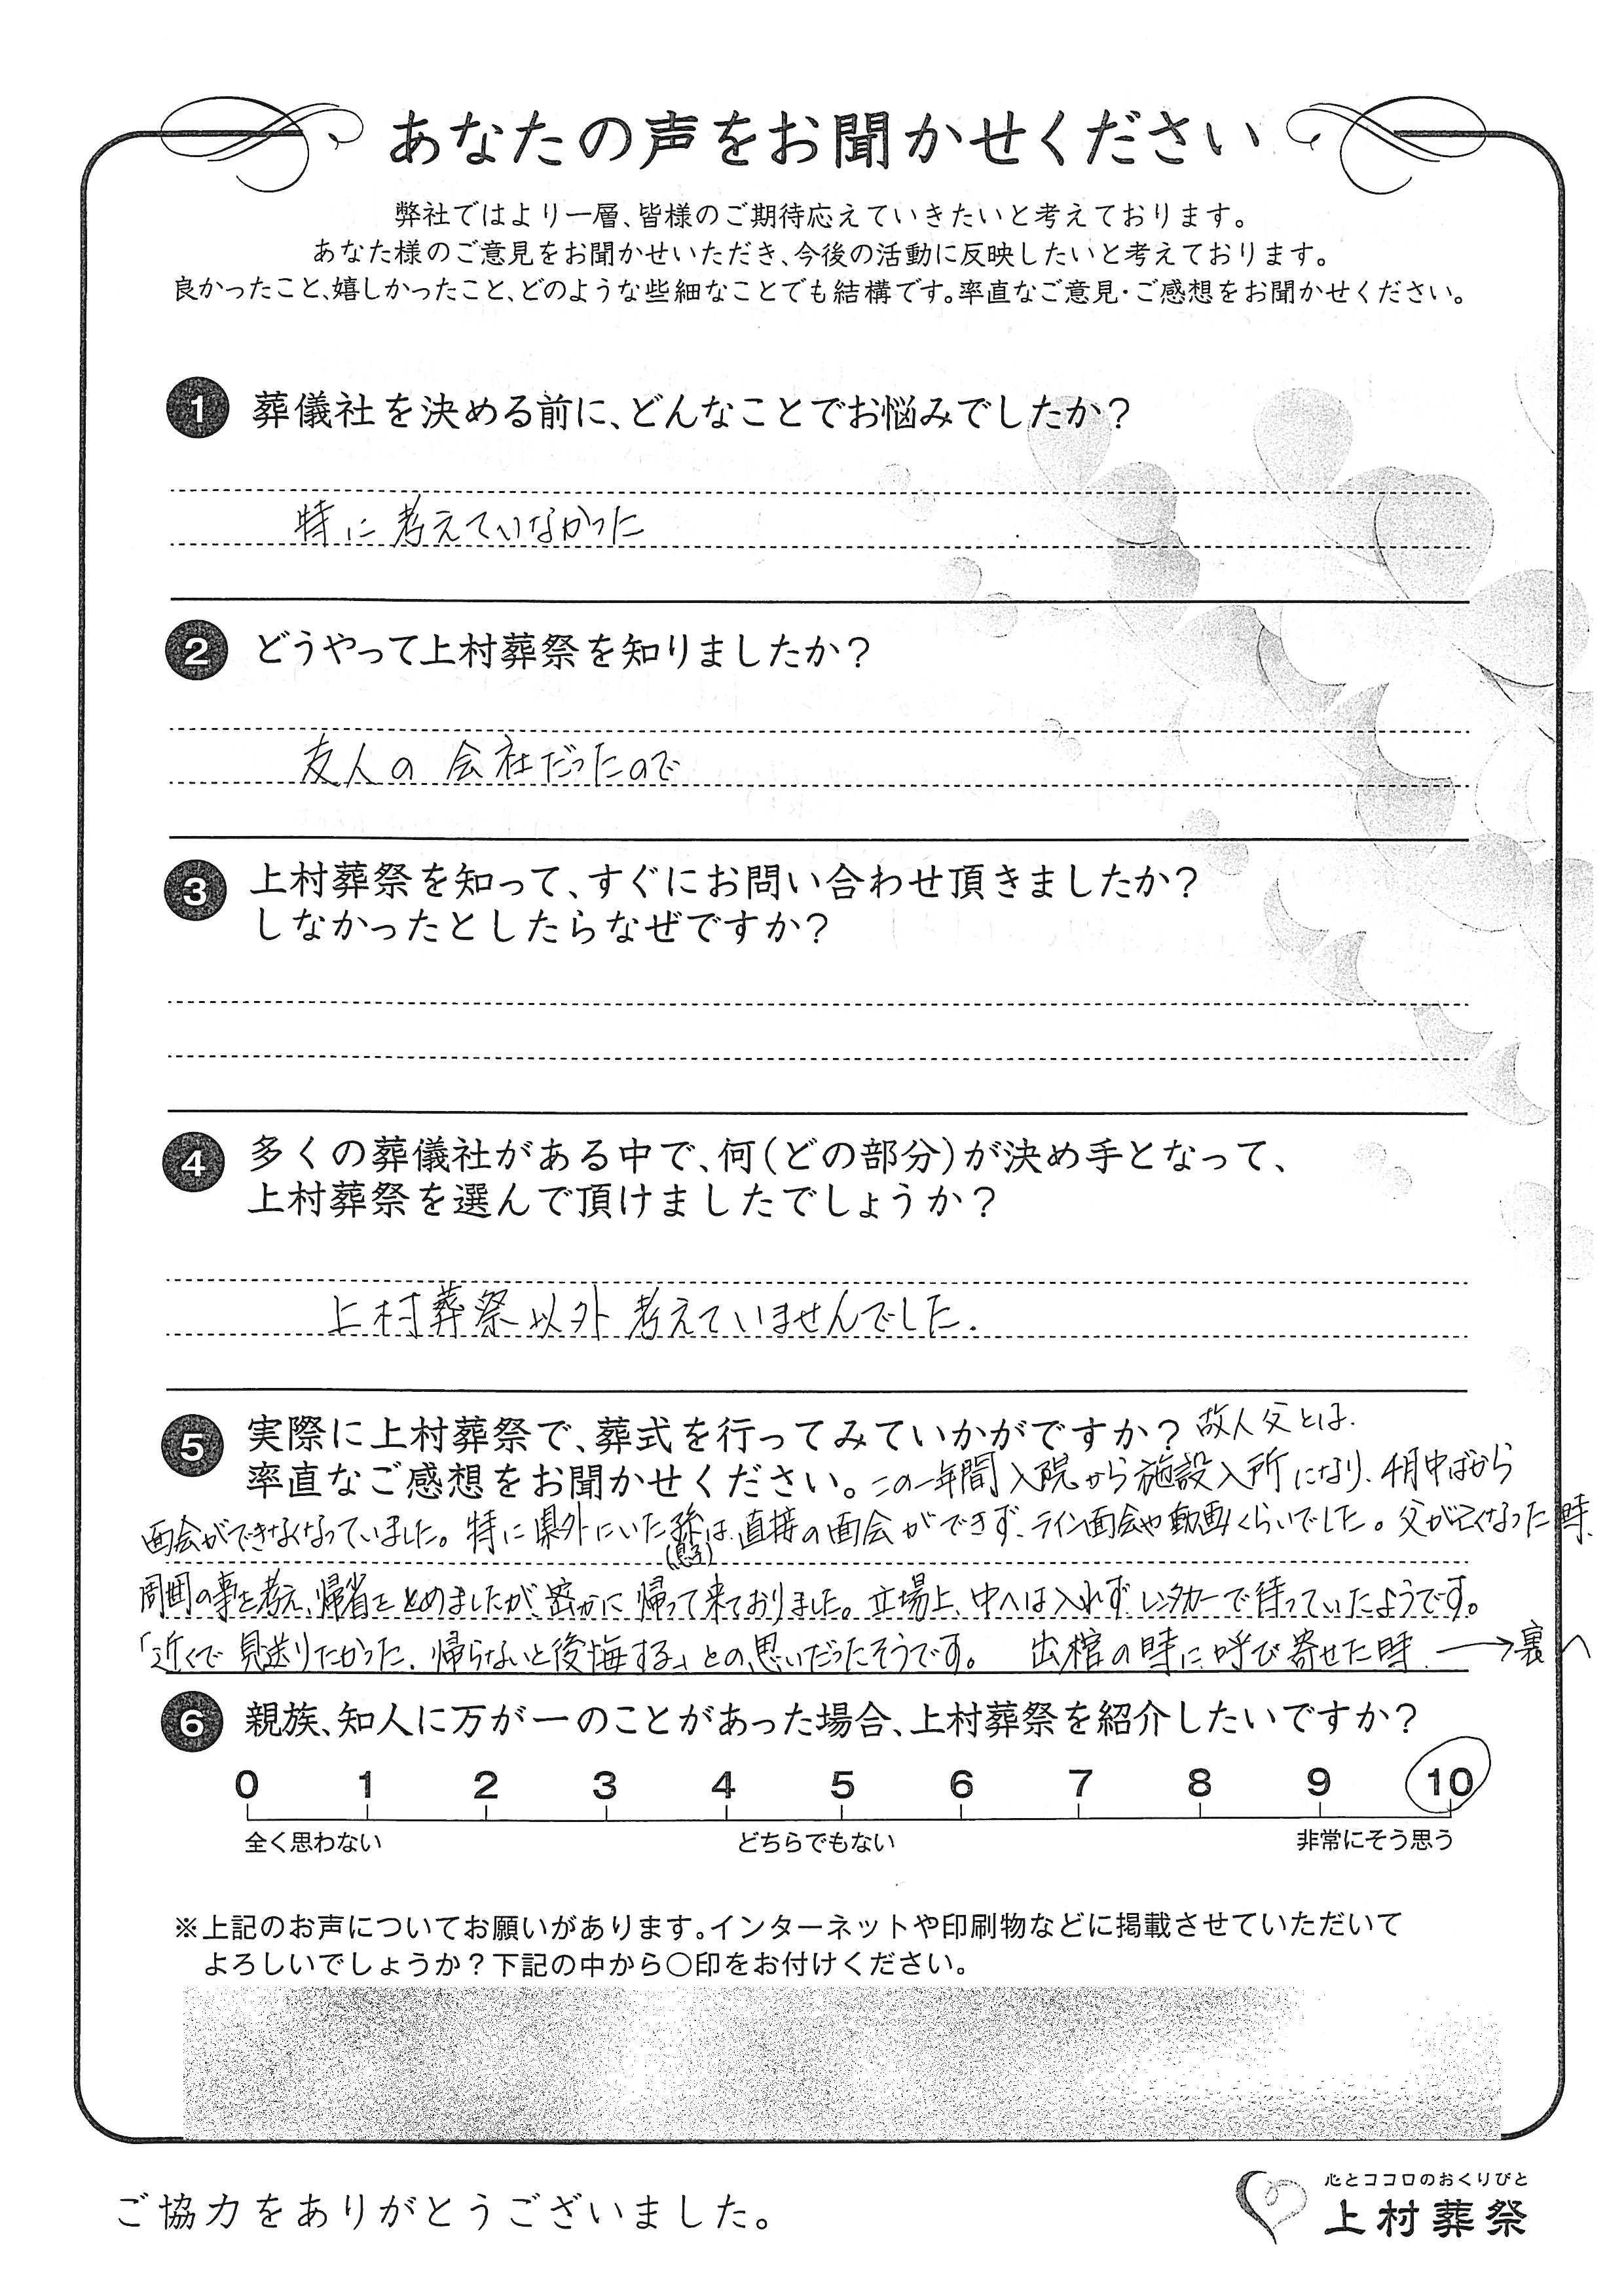 あなたの声をお聞かせください
弊社ではより一層、皆様のご期待応えていきたいと考えております。
あなた様のご意見をお聞かせいただき、今後の活動に反映したいと考えております。
良かったこと、嬉しかったこと、どのような些細なことでも結構です。率直なご意見・ご感想をお聞かせください。
1 葬儀社を決める前に、どんなことでお悩みでしたか?
特に考えていなかった
2 どうやって上村葬祭を知りましたか?
友人の会社だったので
3 上村葬祭を知って、すぐにお問い合わせ頂きましたか?
しなかったとしたらなぜですか?
4 多くの葬儀社がある中で、何(どの部分)が決め手となって、
上村葬祭を選んで頂けましたでしょうか?
上村葬祭以外考えていませんでした.
5 実際に上村葬祭で、葬式を行ってみていかがですか? 故人父とは、
率直なご感想をお聞かせください。この一年間入院から施設入所になり、4月中ばから
面会ができなくなっていました。特に県外にいた孫は、直接の面会ができず、ライン面会や動画くらいでした。父が亡くなった時、
(息子)
周囲の事を考え、帰省をとめましたが、密かに帰って来ておりました。立場上、中へは入れず、レンタカーで待っていたようです。
「近くで見送りたかった、帰らないと後悔する」との思いだったそうです。 出棺の時に呼び寄せた時 →裏へ
6 親族、知人に万が一のことがあった場合、上村葬祭を紹介したいですか?
0 1 2 3 4 5 6 7 8 9 10
全く思わない どちらでもない 非常にそう思う
※上記のお声についてお願いがあります。インターネットや印刷物などに掲載させていただいて
よろしいでしょうか?下記の中から○印をお付けください。
ご協力をありがとうございました。
心とココロのおくりびと
上村葬祭